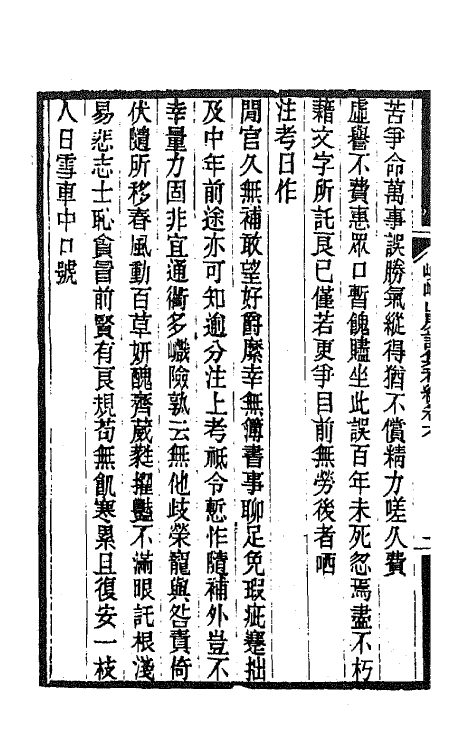 苦爭命萬事誤勝氣縱得猶不償精力嗟久費
虛譽不費惠眾口暫餽贐坐此誤百年未死忽焉盡不朽
藉文字所託良已僅若更爭目前無勞後者哂
注考日作
閒官久無補敢望好爵縻幸無簿書事聊足免瑕疵蹇拙
及中年前途亦可知逾分注上考祗令慙怍隨補外豈不
幸量力固非宜通衢多巇險孰云無他歧榮寵與咎責倚
伏隨所移春風動百草妍醜齊葳蕤擢豔不滿眼託根淺
易悲志士恥貪冒前賢有良規苟無飢寒累且復安一枝
人日雪車中口號